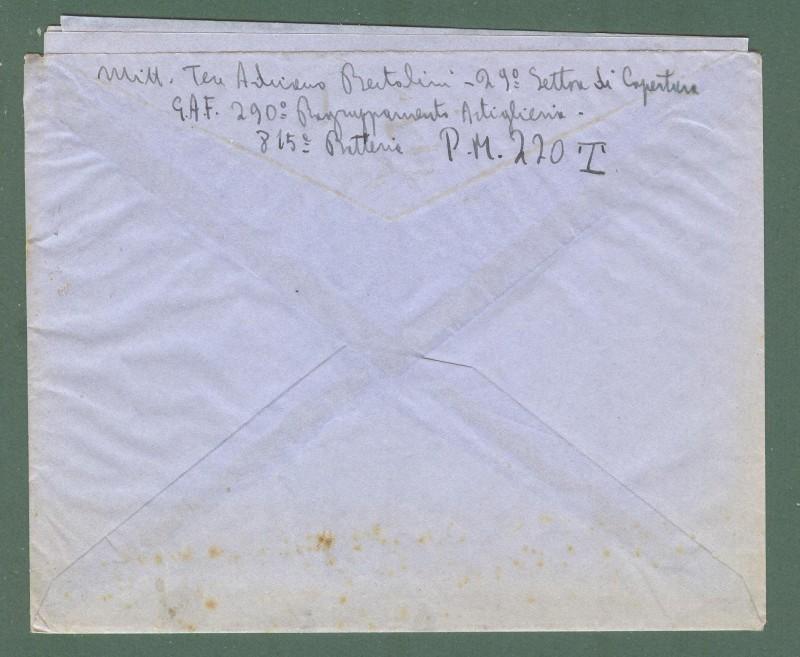 Mitt. Ten Adriano Bertolini - 29º Settore di Copertura
G.A.F. 290º Raggruppamento Artiglieria -
815ª Batteria P.M. 220 T